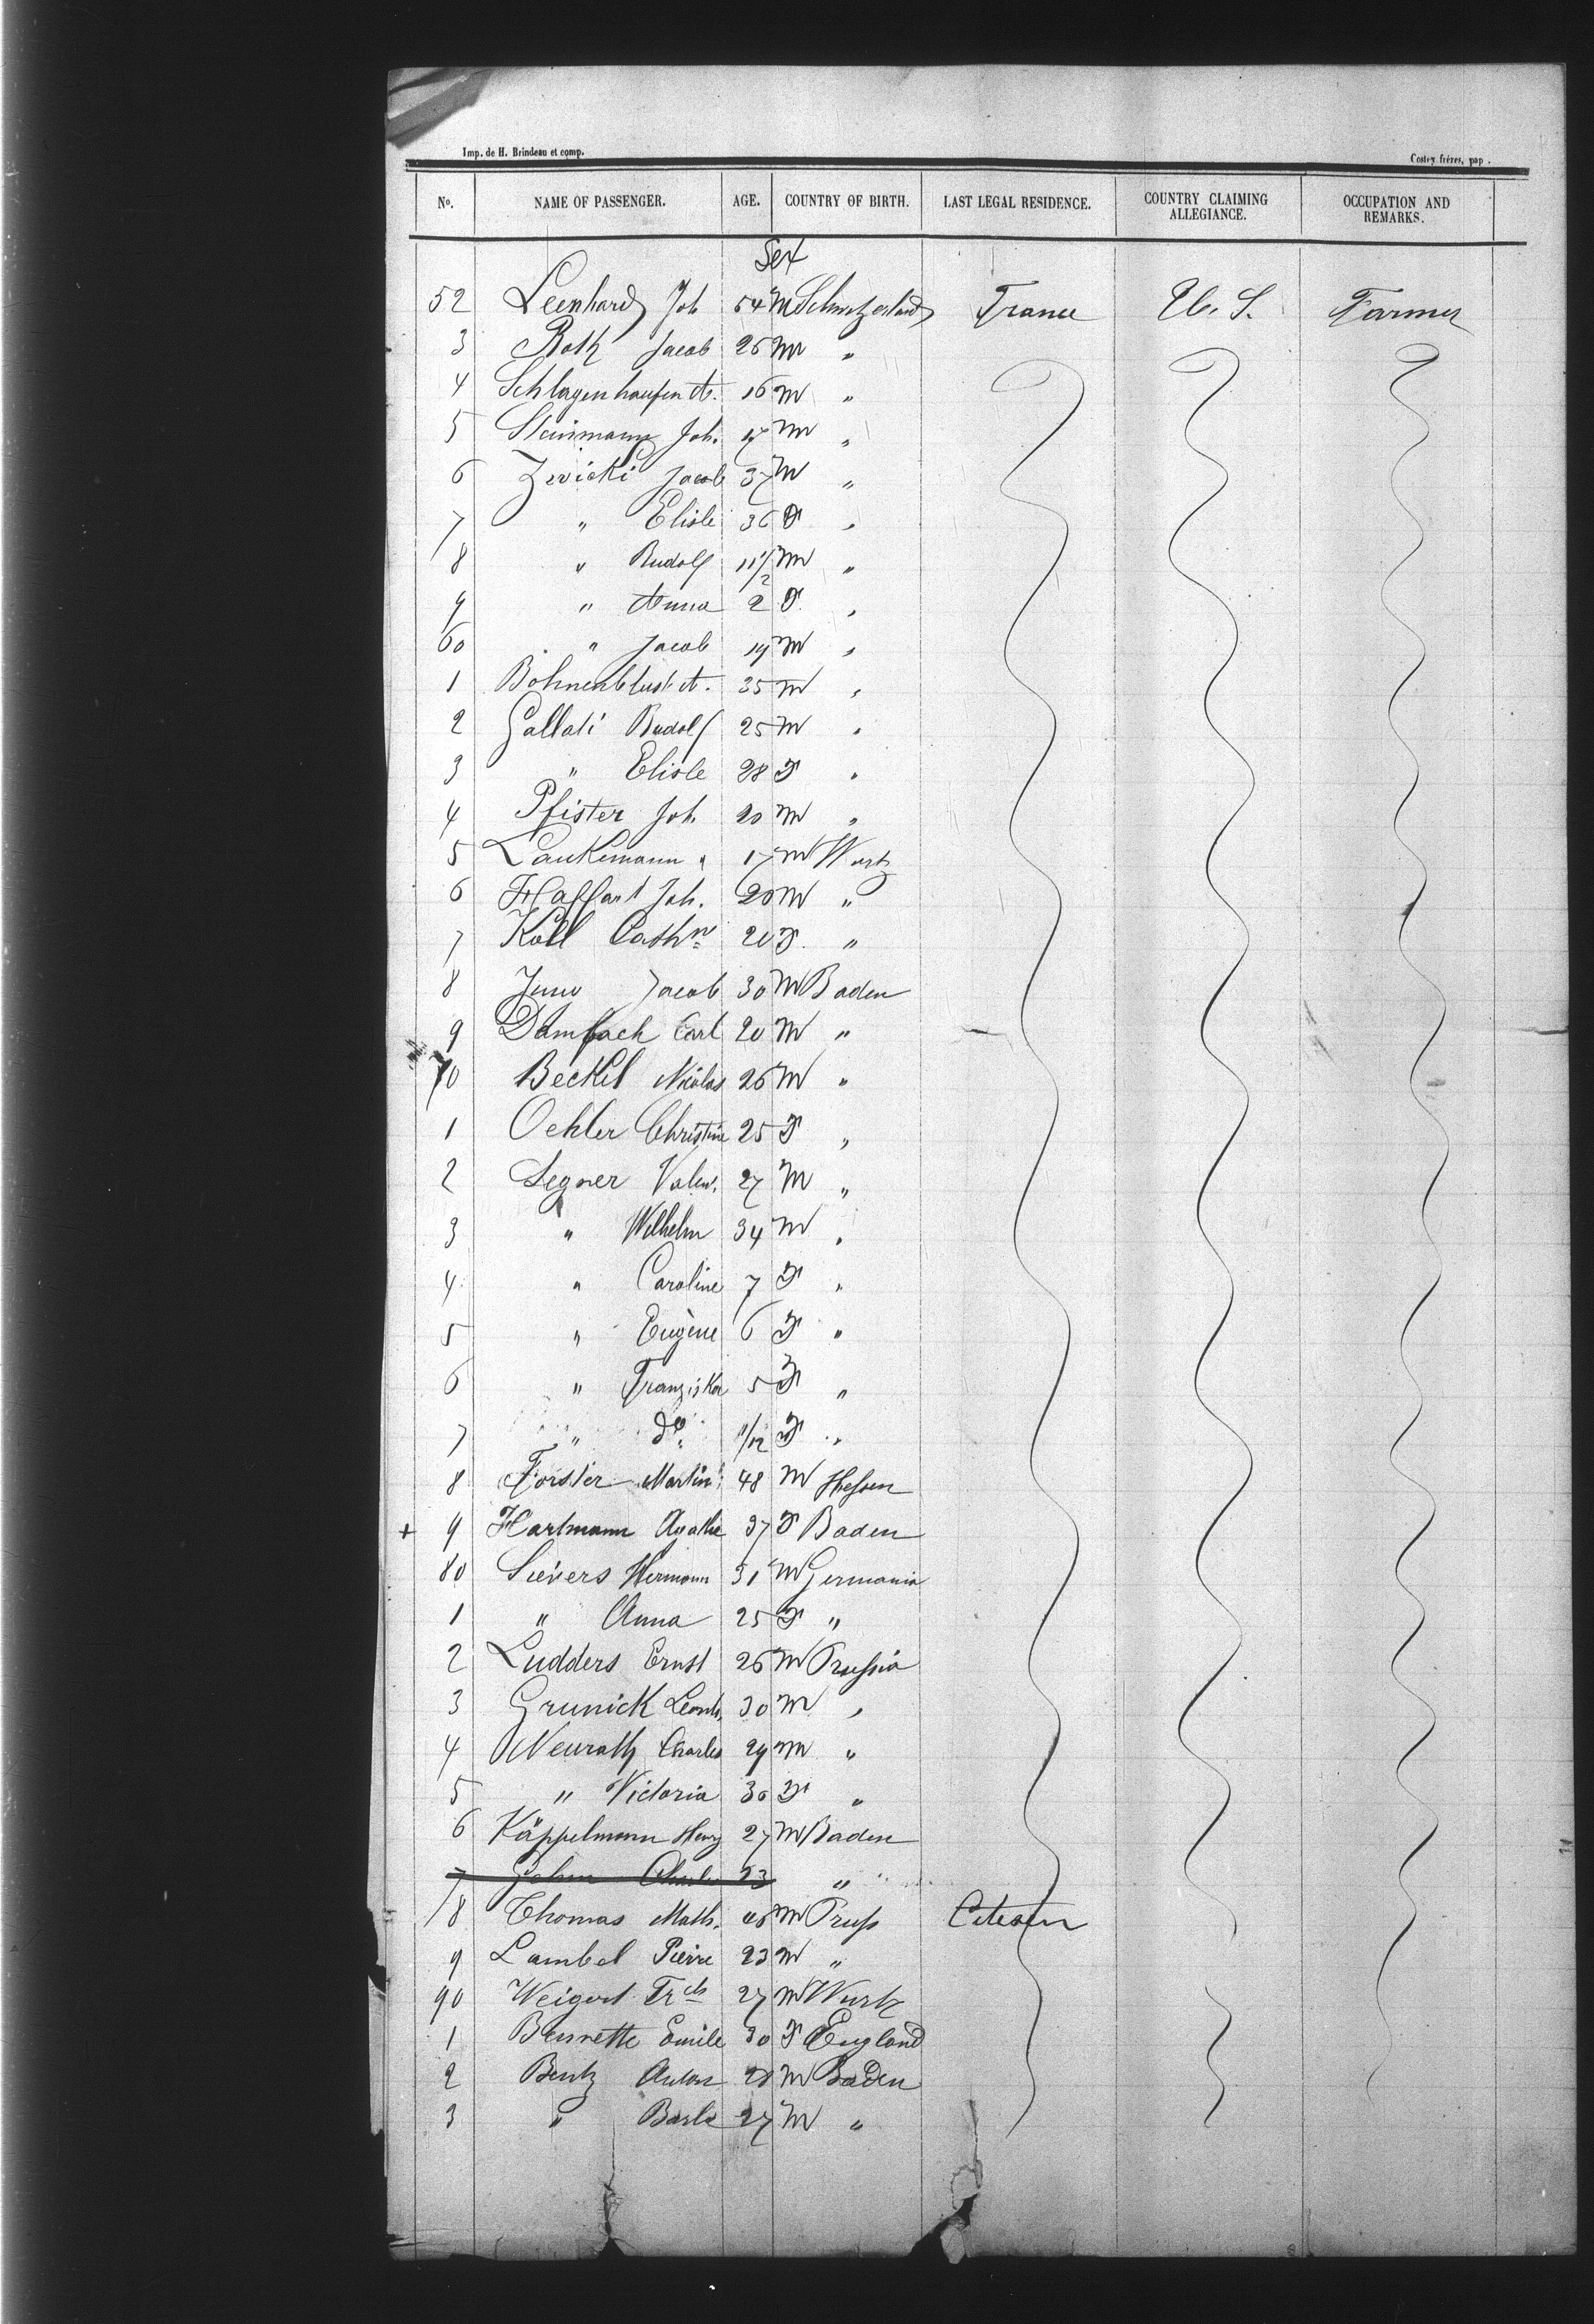 Imp. de H. Brindeau et comp. Costey frères, pap.
No. NAME OF PASSENGER. AGE. COUNTRY OF BIRTH. LAST LEGAL RESIDENCE. COUNTRY CLAIMING ALLEGIANCE. OCCUPATION AND REMARKS.
Sex
52 Leenhard Joh 54 M Schwitzerland France U. S. Farmer
3 Roth Jacob 26 M "
4 Schlagenhaufen A. 16 M "
5 Steinmann Joh. 47 M "
6 Zwicki Jacob 37 M "
7 " Elisle 36 F "
8 " Rudolf 11 1/2 M "
9 " Anna 2 F "
60 " Jacob 19 M "
1 Bohnenblust A. 35 M "
2 Gallati Rudolf 25 M "
3 " Elisle 28 F "
4 Pfister Joh. 20 M "
5 Laukemann " 17 M Wurtz
6 Haffart Joh. 20 M "
7 Koll Cathne 20 F "
8 Jacob 30 M Baden
9 Dambach Carl 20 M "
70 Beckel Nicolas 26 M "
1 Oehler Christine 25 F "
2 Segner Valen. 27 M "
3 " Wilhelm 34 M "
4 " Caroline 7 F "
5 " Eugène 6 F "
6 " Franziska 5 F "
7 " do. 11/12 F "
8 Forster Martin 48 M Hessen
+ 9 Hartmann Agathe 37 F Baden
80 Sievers Hermann 31 M Germania
1 " Anna 25 F "
2 Ludders Ernst 26 M Prussia
3 Grunick Leonh. 30 M "
4 Neurath Charles 29 M "
5 " Victoria 30 F "
6 Käppelmann Henry 27 M Baden
7 23 "
8 Thomas Math. 46 M Pruss Citesen
9 Lambel Pierre 23 M "
90 Weigert Frch 27 M Wurtz
1 Bennette Emile 30 F England
2 Bentz Anton 28 M Baden
3 " Barb 27 M "